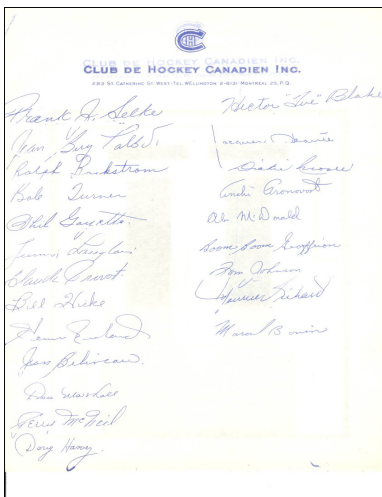 CLUB DE HOCKEY CANADIEN INC.
CLUB DE HOCKEY CANADIEN INC.
2313 ST. CATHERINE ST. WEST - TEL. WELLINGTON 2-6131 - MONTREAL 25, P.Q.
Frank J. Selke
Jean "Guy" Talbot
Ralph Backstrom
Bob Turner
Phil Goyette
Junior Langlois
Claude Provost
Bill Hicke
Henri Richard
Jean Béliveau
Don Marshall
Gerry McNeil
Doug Harvey
Hector "Toe" Blake
Jacques Plante
Dickie Moore
André Pronovost
Ab McDonald
Boom Boom Geoffrion
Tom Johnson
Maurice Richard
Marcel Bonin